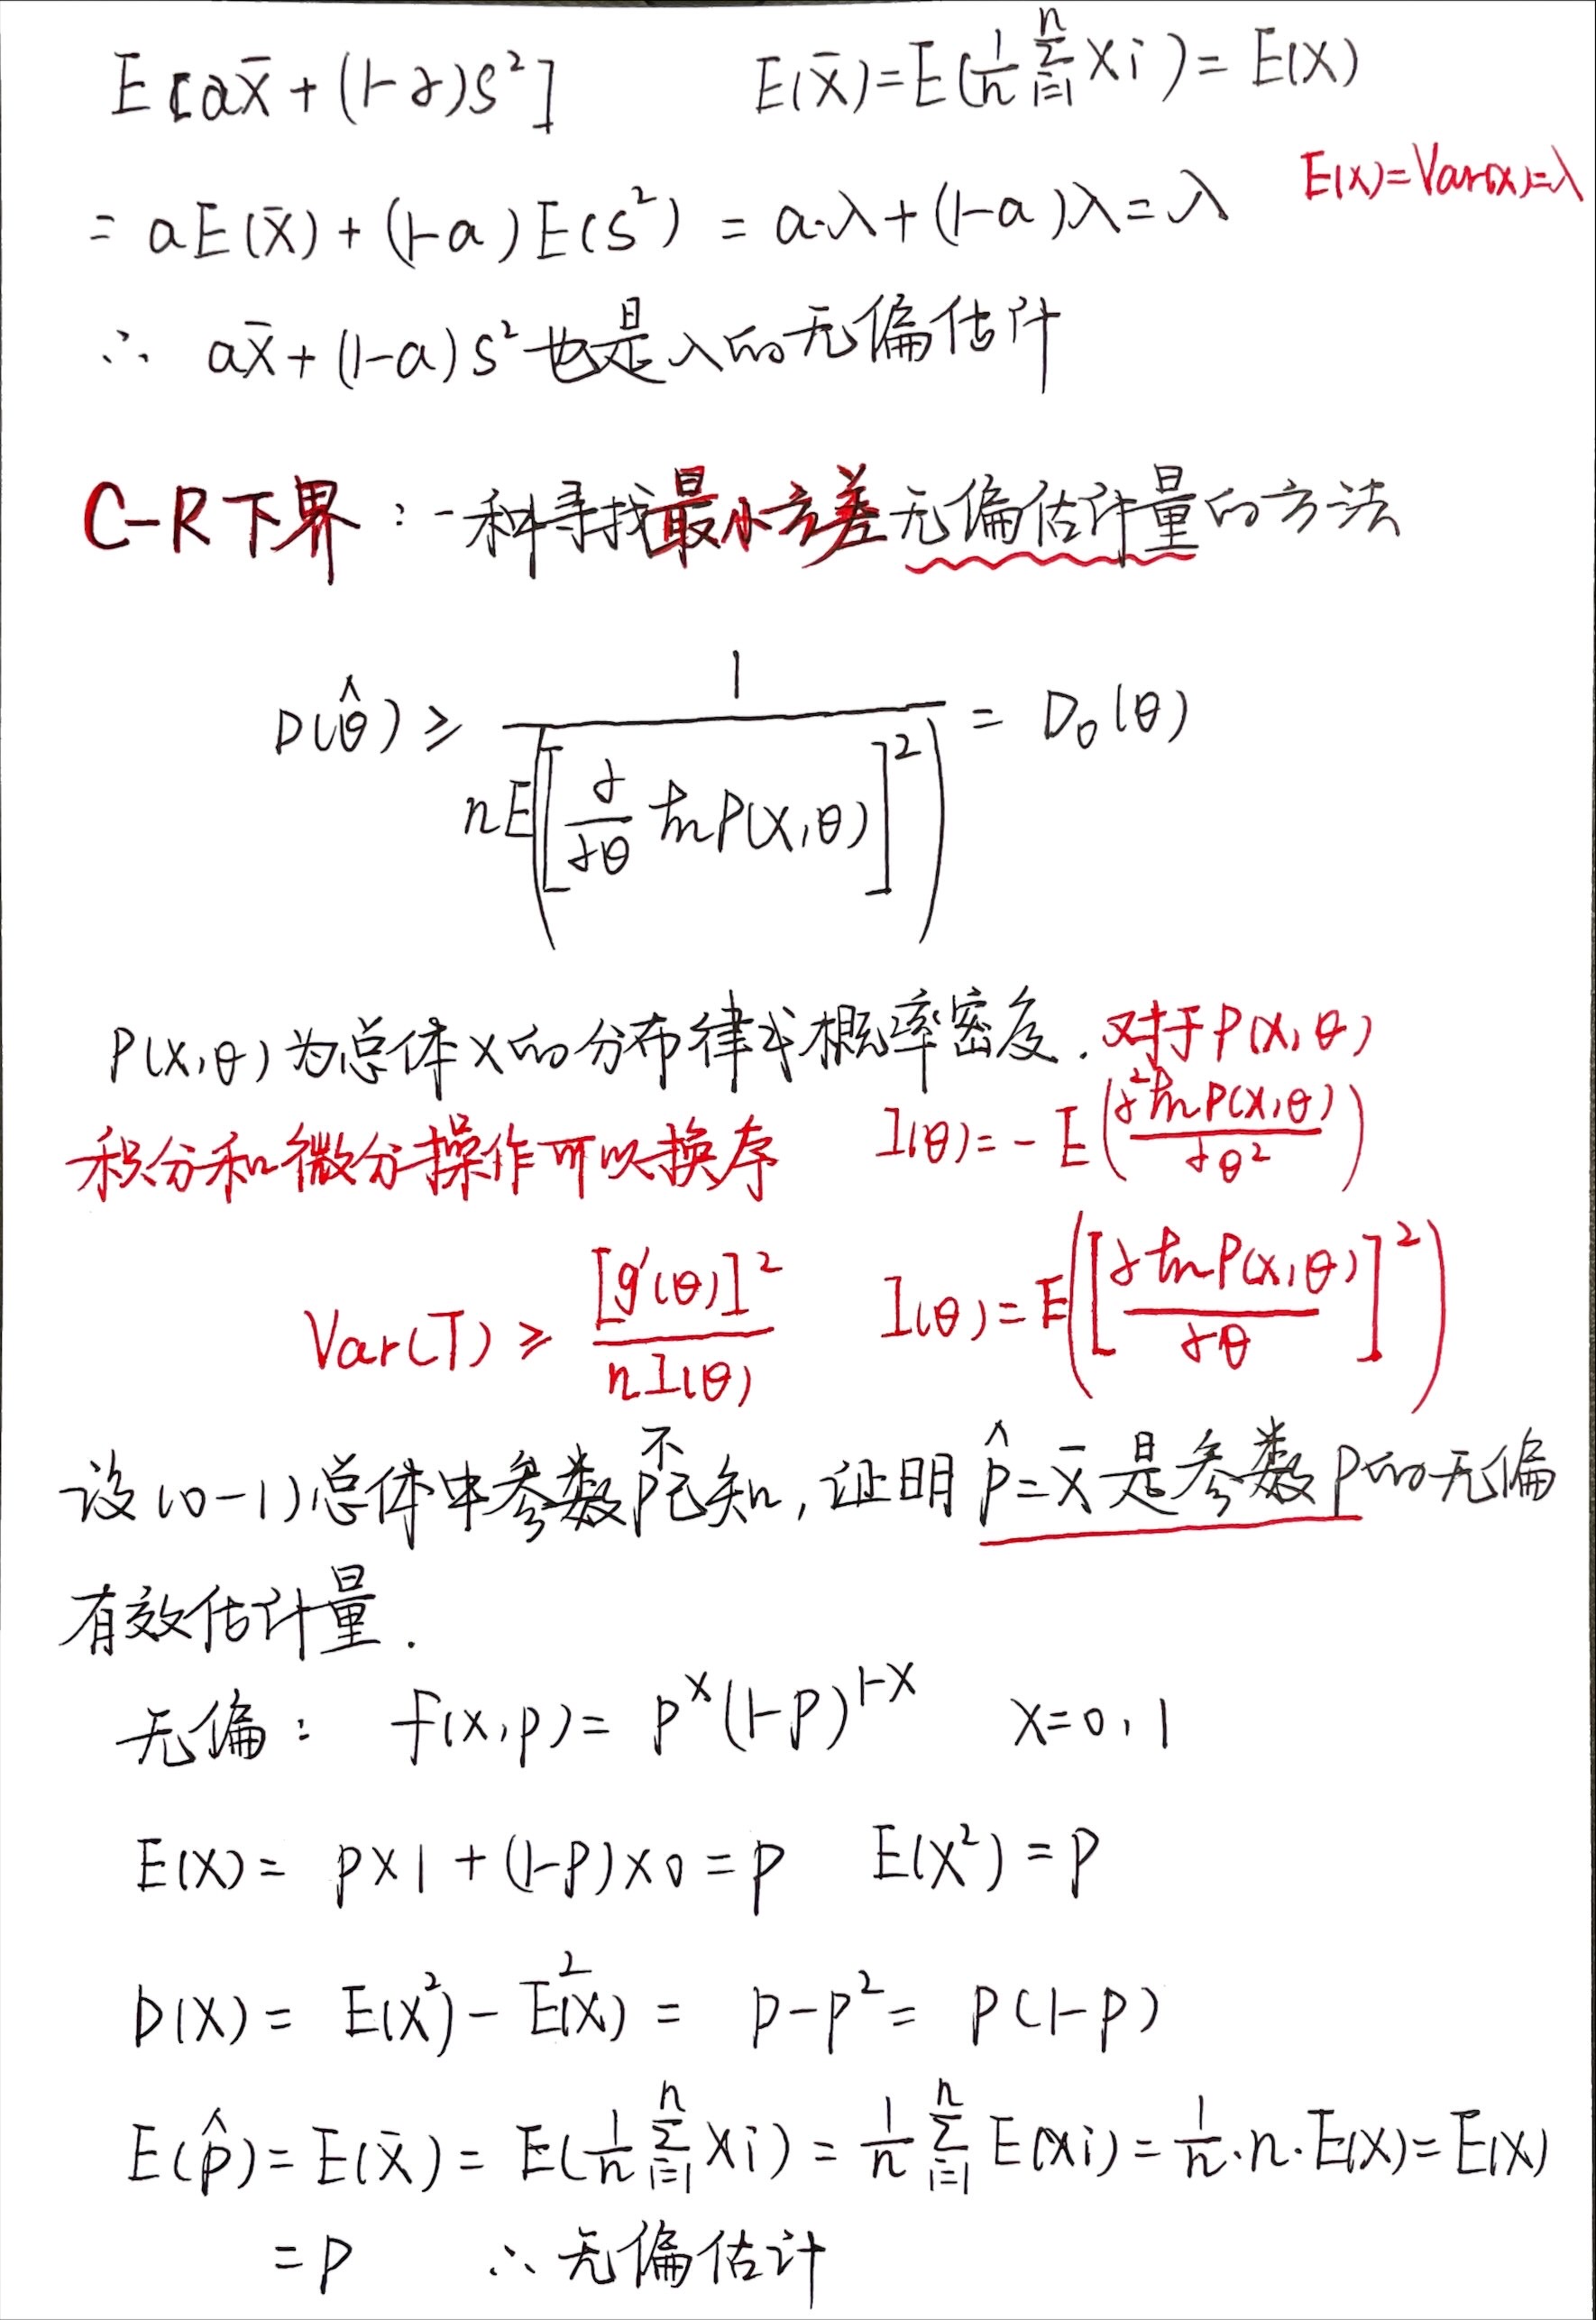 E[aX̄ + (1-a)S²]    E(X̄) = E(1/n Σ_{i=1}^{n} Xi) = E(X)
E(X) = Var(X) = λ
= aE(X̄) + (1-a)E(S²) = a·λ + (1-a)λ = λ
∴ aX̄ + (1-a)S² 也是λ的无偏估计
C-R下界：一种寻找最小方差无偏估计量的方法
D(θ̂) ≥ 1 / nE([∂/∂θ ln P(X,θ)]²) = D₀(θ)
P(X,θ)为总体X的分布律或概率密度. 对于P(X,θ)
积分和微分操作可以换序    I(θ) = -E(∂² ln P(X,θ) / ∂θ²)
Var(T) ≥ [g'(θ)]² / nI(θ)    I(θ) = E([∂ ln P(X,θ) / ∂θ]²)
设(0-1)总体中参数p不知, 证明 p̂ = X̄ 是参数p的无偏
有效估计量.
无偏: f(x,p) = p^x (1-p)^{1-x}    x=0,1
E(X) = p×1 + (1-p)×0 = p    E(X²) = p
D(X) = E(X²) - E²(X) = p - p² = p(1-p)
E(p̂) = E(X̄) = E(1/n Σ_{i=1}^{n} Xi) = 1/n Σ_{i=1}^{n} E(Xi) = 1/n·n·E(X) = E(X)
= p    ∴ 无偏估计